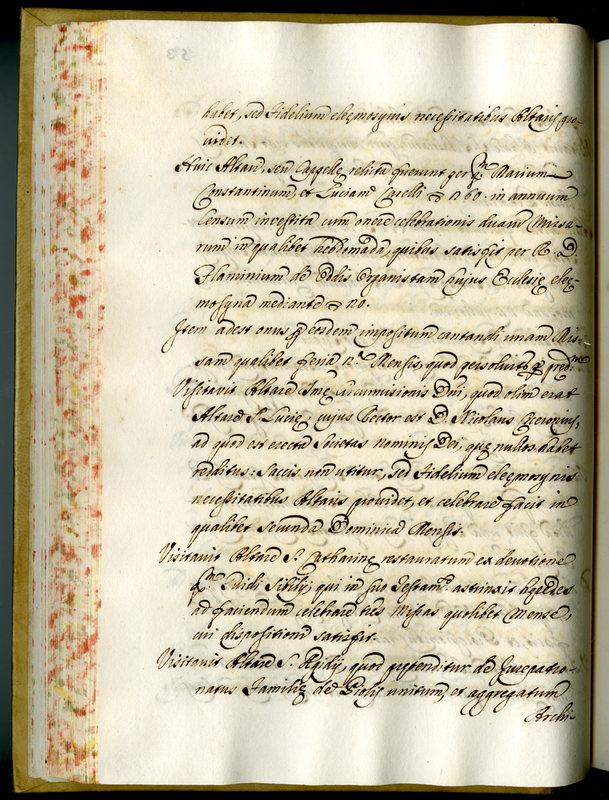 habet, sed Fidelium eleęmosynis necessitatibus Altaris pro-
videt.
Huic Altari, seu Cappellę relicta fuerunt per qm Marium
Constantinum, et Luciam Carelli 60. in annuum
Censum investita cum onere celebrationis duarum Missa-
rum in qualibet hebdomada, quibus satisfit per R. D.
Flaminium de Organistam hujus Ecclesię eleę-
mosyna mediante
Item adest onus p eosdem impositum cantandi unam Mis-
sam qualibet feria 2.a Mensis, quod persolvitur p
Visitavit Altare Smę Circumcisionis Dni, quod olim erat
Altare S. Lucię, cujus Rector est D. Nicolaus
ad quod est erecta Societas Nominis Dei, quę nullos habet
redditus: Saccis non utitur, sed Fidelium eleęmosynis
necessitatibus Altaris providet, et celebrare facit in
qualibet secunda Dominica Mensis.
Visitavit Altare S. Catharinę restauratum ex devotione
qm Guidi Sibilij, qui in suo Testam.o astrinxit hęredes
ad faciendum celebrare tres Missas quolibet Mense,
cui dispositioni satisfit.
Visitavit Altare S. Ægidij, quod prętenditur de Jurepatro-
natus Familię de unitum, et aggregatum
Archi-